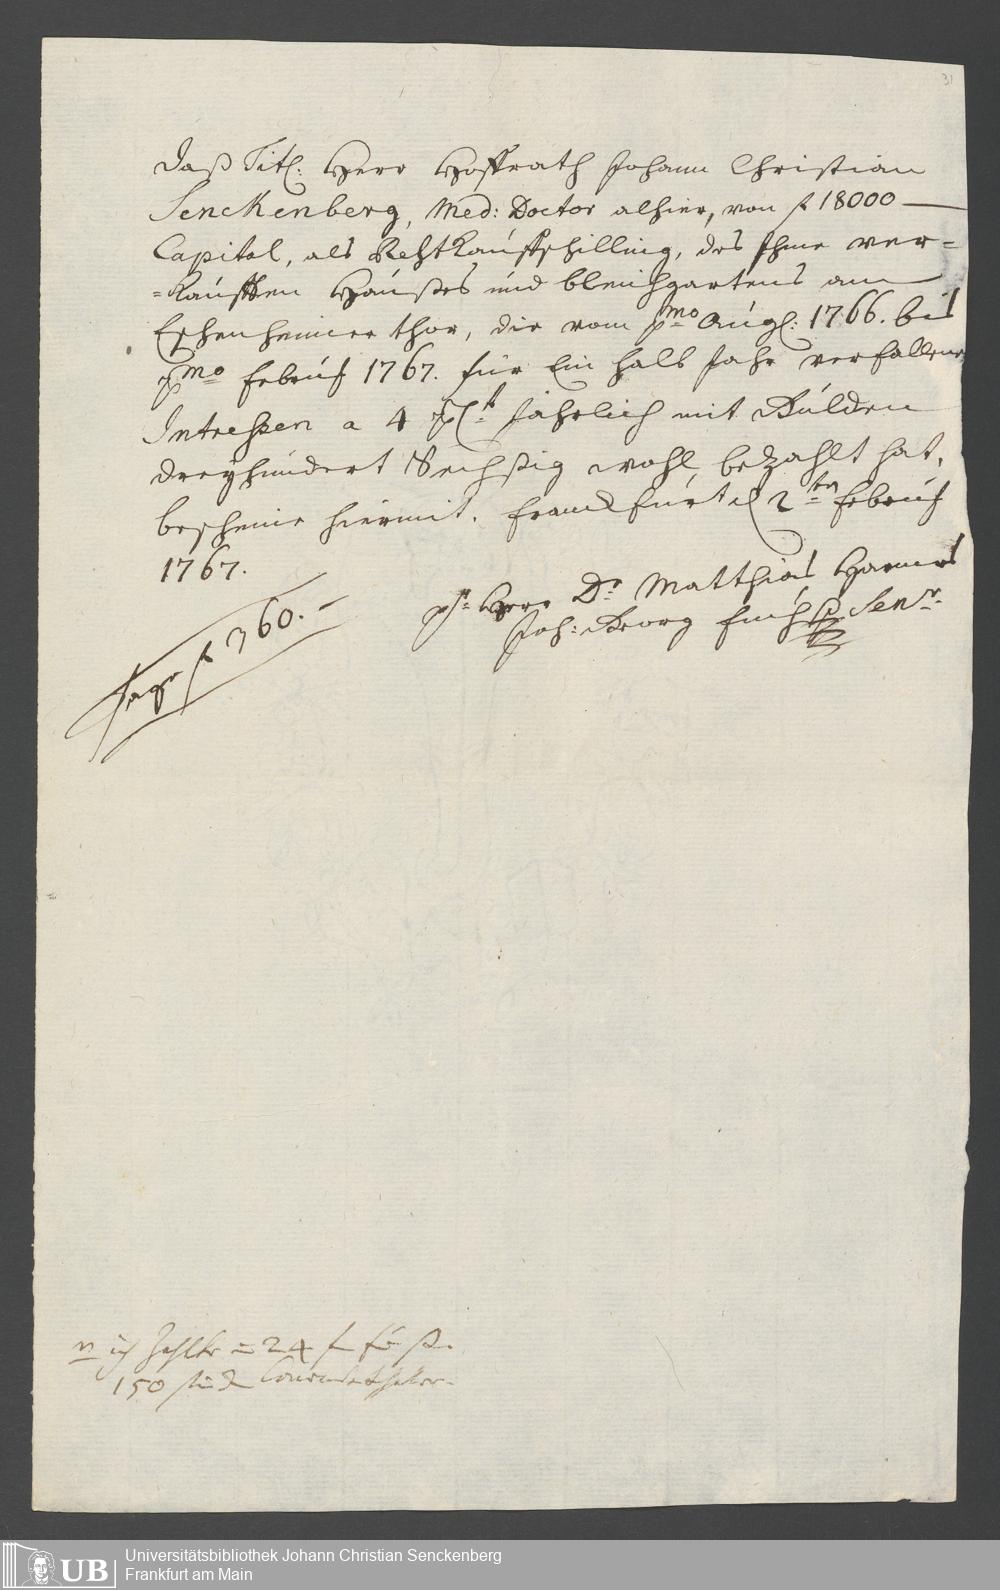 31
Daß Titl: Herr Hoffrath Johann Christian
Senckenberg, Med: Doctor alhier, von f 18000 —
Capital, als Restkauffschilling, des Ihme ver=
=kaufften Haußes und bleichgartens am
Eschenheimer thor, die vom pmo Augl: 1766. bis
pmo Februar 1767. für Ein halb Jahr verfallene
Intreßen a 4 pCt jährlich mit Gulden
dreyhundert Sechßig wohl bezahlt hat,
bescheine hiermit. Franckfurt d 2ten Februar
1767.
pr Herr Dr Matthias
Joh: Georg Senr
sage f 360.–
ich Zahlte = 24 f
150 stück
Universitätsbibliothek Johann Christian Senckenberg
Frankfurt am Main
UB